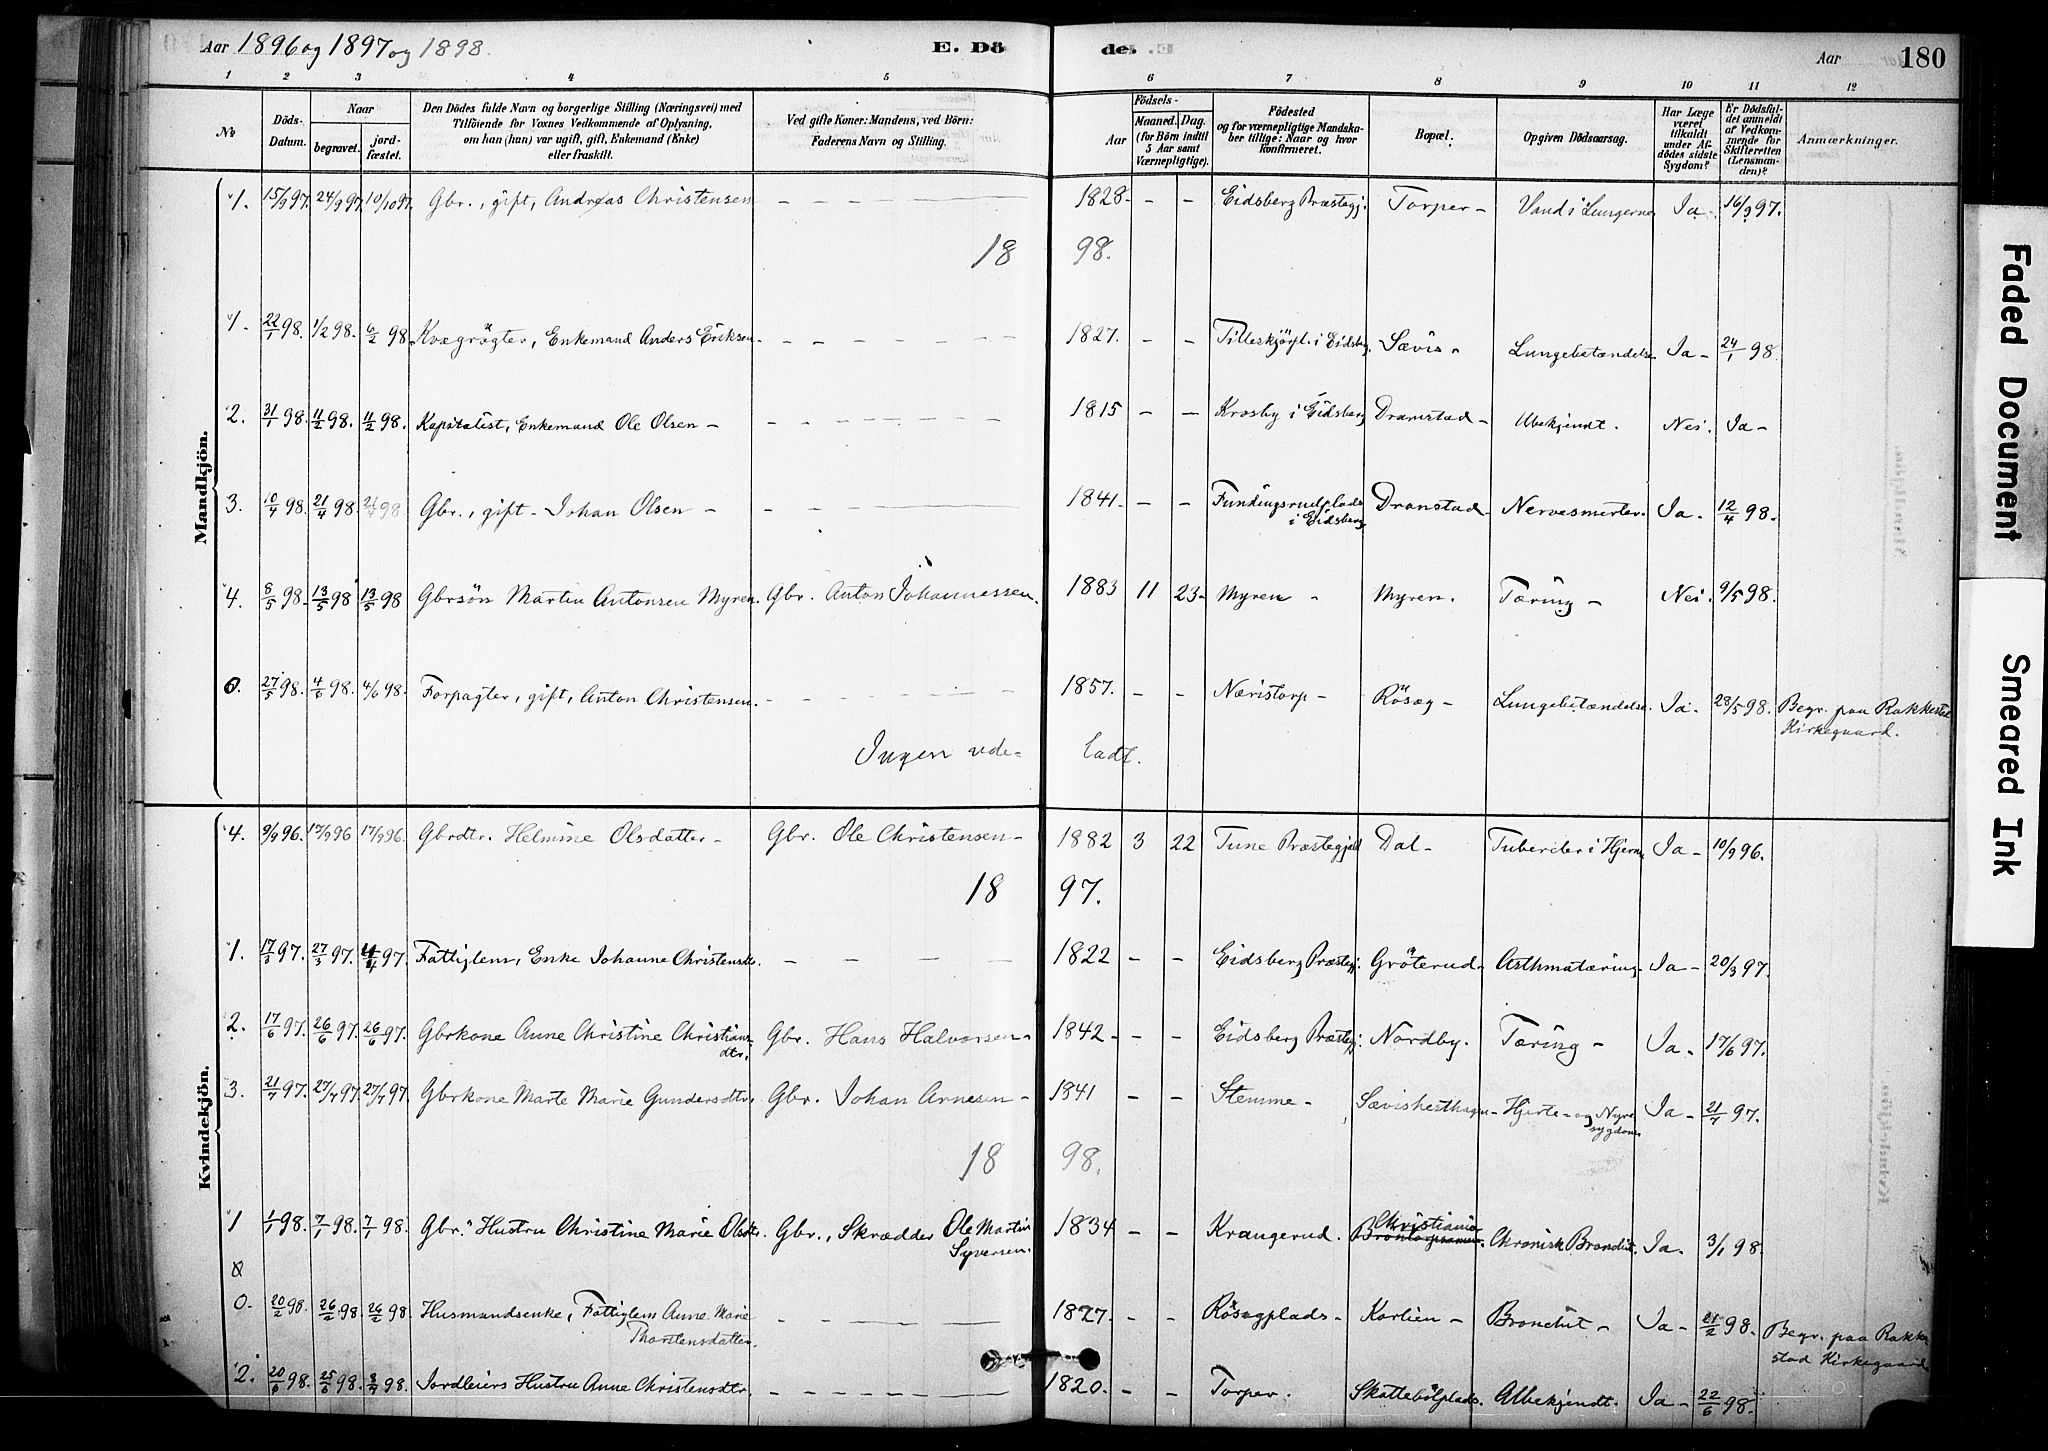 Aar 1896 og 1897 og 1898. E. Dö de. Aar 180
1 2 3 4 5 6 7 8 9 10 11 12
No
Döds-Datum.
Naar
begravet.
jordfæstet.
Den Dödes fulde Navn og borgerlige Stilling (Næringsvei) med
Tilföiende for Voxnes Vedkommende af Oplysning,
om han (han) var ugift, gift, Enkemand (Enke)
eller fraskilt.
Ved gifte Koner: Mandens, ved Börn:
Faderens Navn og Stilling.
Födsels-
Aar
Maaned. Dag.
(for Börn indtil
5 Aar samt
Værnepligtige).
Födested
og for værnepligtige Mandska-
ber tillige: Naar og hvor
konfirmeret.
Bopæl.
Opgiven Dödsaarsag.
Har Læge
været
tilkaldt
under Af-
dödes sidste
Sygdom?
Er Dödsfal-
det anmeldt
af Vedkom-
mende for
Skifteretten
(Lensman-
den)?
Anmærkninger.
Mandkjön.
1. 15/9 97. 24/9 97. 10/10 97. Gbr., gift, Andreas Christensen — — — 1828 - - - Eidsberg Præstegj. Torper - Vand i Lungerne Ja 16/9 97.
18 98.
1. 22/1 98. 1/2 98. 6/2 98. Kvægrögter, Enkemand Anders Eriksen - - - 1827. - - Tilleskjörpl. i Eidsbg. Sævis - Lungebetændelse Ja - 24/1 98.
2. 31/1 98. 11/2 98. 11/2 98. Kapitalist, Enkemand Ole Olsen - - - - 1815 - - Krosby i Eidsberg Dramstad - Ubekjendt. Nei. Ja -
3. 10/4 98. 21/4 98. 21/4 98. Gbr., gift - Johan Olsen - - - 1841. - - Fundingsrudplads Dramstad - Nervesmerter. Ja. 12/4 98.
i Eidsberg
4. 8/5 98. 13/5 98 13/5 98 Gbrsön Martin Antonsen Myren. Gbr. Anton Johannessen. 1883 11 23 - Myren - Myren. Tæring - Nei. 9/5 98.
0. 27/5 98. 4/6 98. 4/6 98. Forpagter, gift, Anton Christensen. - - - 1857. - - Næristorp - Rösæg - Lungebetændelse. Ja. 28/5 98. Begr. paa Rakkestad
Kirkegaard.
Ingen ude- ladt.
Kvindekjön.
4. 9/9 96. 17/9 96 17/9 96. Gbrdtr. Helmine Olsdatter - Gbr. Ole Christensen - 1882 3 22 Tune Præstegjeld Dal - Tuberkler i Hjernen Ja - 10/9 96.
18 97.
1. 17/3 97. 27/3 97. 4/4 97. Fattiglem, Enke Johanne Christensdtr. - - - 1822 - - Eidsberg Præstegj. Gröterud - Asthmatæring Ja - 20/3 97.
2. 17/6 97. 26/6 97. 26/6 97. Gbrkone Anne Christine Christians- Gbr. Hans Halvorsen - 1842 - - - Eidsberg Præstegj. Nordby. Tæring - Ja - 17/6 97.
dtr.
3. 21/7 97. 27/7 97. 27/7 97. Gbrkone Marte Marie Gundersdtr. Gbr. Johan Arnesen - 1841 - - Stemme - Sævishesthagen - Hjerte - og Nyre Ja - 21/7 97.
sygdom
18 98.
1 1/1 98. 7/1 98. 7/1 98. Gbr. Hustru Christine Marie Olsdtr. Gbr., Skrædder Ole Martin 1834 - - Krangerud. Christiania Chronisk Bronchit. Ja. 3/1 98.
Syversen.
0. 20/2 98. 26/2 98 26/2 98 Husmandsenke, Fattiglem Anne Marie - - - 1827. - - Rösægplads - Karlien - Bronchit - Ja - 21/2 98. Begr. paa Rakke-
Thorstensdatter. stad Kirkegaard
2. 20/6 98. 25/6 98. 3/7 98. Jordleiers Hustru Anne Christensdtr. - - - 1820. - - Torper. Skattebölplads. Ubekjendt. Ja - 22/6 98.
Faded Document
Smeared Ink